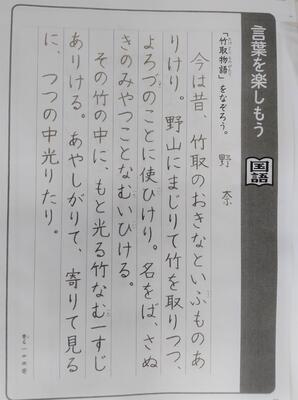 言葉を楽しもう 国語
「竹取物語」をなぞろう。
野 奈
今は昔、竹取のおきなといふものあ
りけり。野山にまじりて竹を取りつつ、
よろづのことに使ひけり。名をば、さぬ
きのみやつことなむいひける。
その竹の中に、もと光る竹なむ一すじ
ありける。あやしがりて、寄りて見る
に、つつの中光りたり。